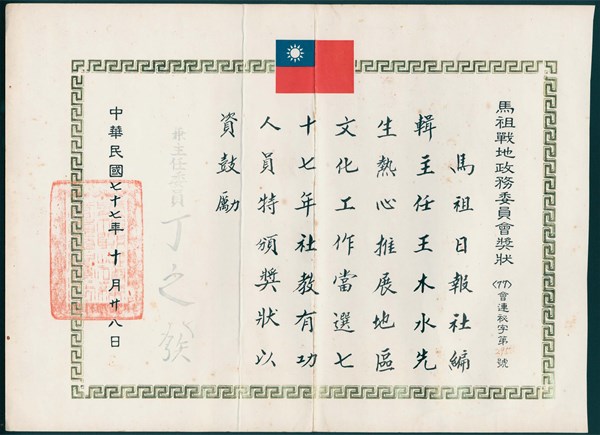 馬祖戰地政務委員會獎狀
(77)會連秘字第 號
馬祖日報社編
輯主任王木水先
生熱心推展地區
文化工作當選七
十七年社教有功
人員特頒獎狀以
資鼓勵
兼主任委員 丁之發
中華民國七十七年十月廿八日